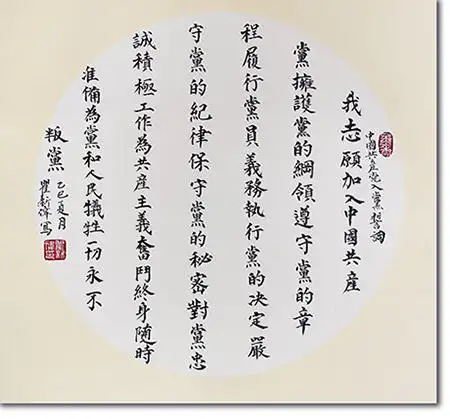 中國共産党入黨誓詞
我志願加入中國共産
黨擁護黨的綱領遵守黨的章
程履行黨員義務執行黨的决定嚴
守黨的紀律保守黨的秘密對黨忠
誠積極工作為共産主義奮鬥終身隨時
准備為黨和人民犧牲一切永不
叛黨
乙巳夏月
瞿新偉寫